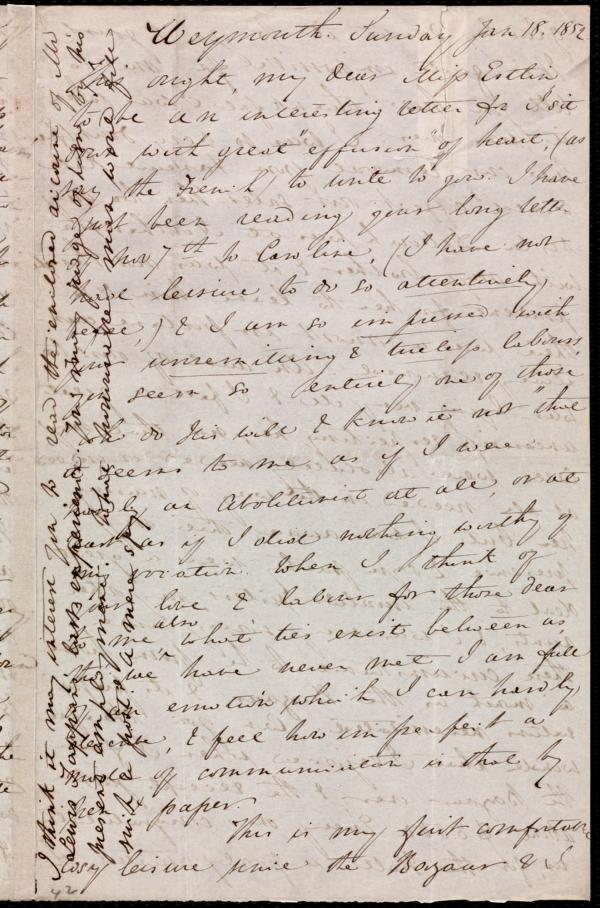 Weymouth. Sunday Jan 18. 1852
This ought, my dear Miss Estlin
to be an interesting letter for I sit
down with great "effusion" of heart, (as
say the French) to write to you. I have
just been reading your long letter
of Nov 7th to Caroline, (I have not
had leisure to do so attentively
before,) & I am so impressed with
your unremitting & tireless labours,
you seem so entirely one of those
"who do His will & know it not" that
it seems to me as if I were
an Abolitionist at all, or at
least as if I did nothing worthy of
When I think of
your love & labour for those dear
to me also what ties exist between us
we have never met I am full
emotion which I can hardly
& feel how imperfect a
mode of communication is that by
pen & paper
This is my first comfortable
cosy leisure since the Bazaar & I
I think it may interest you to read the enclosed account of Mr
Lewis Tappan's bark experience. You may judge of him by his
present employment. What
such a post as a mere spy
42